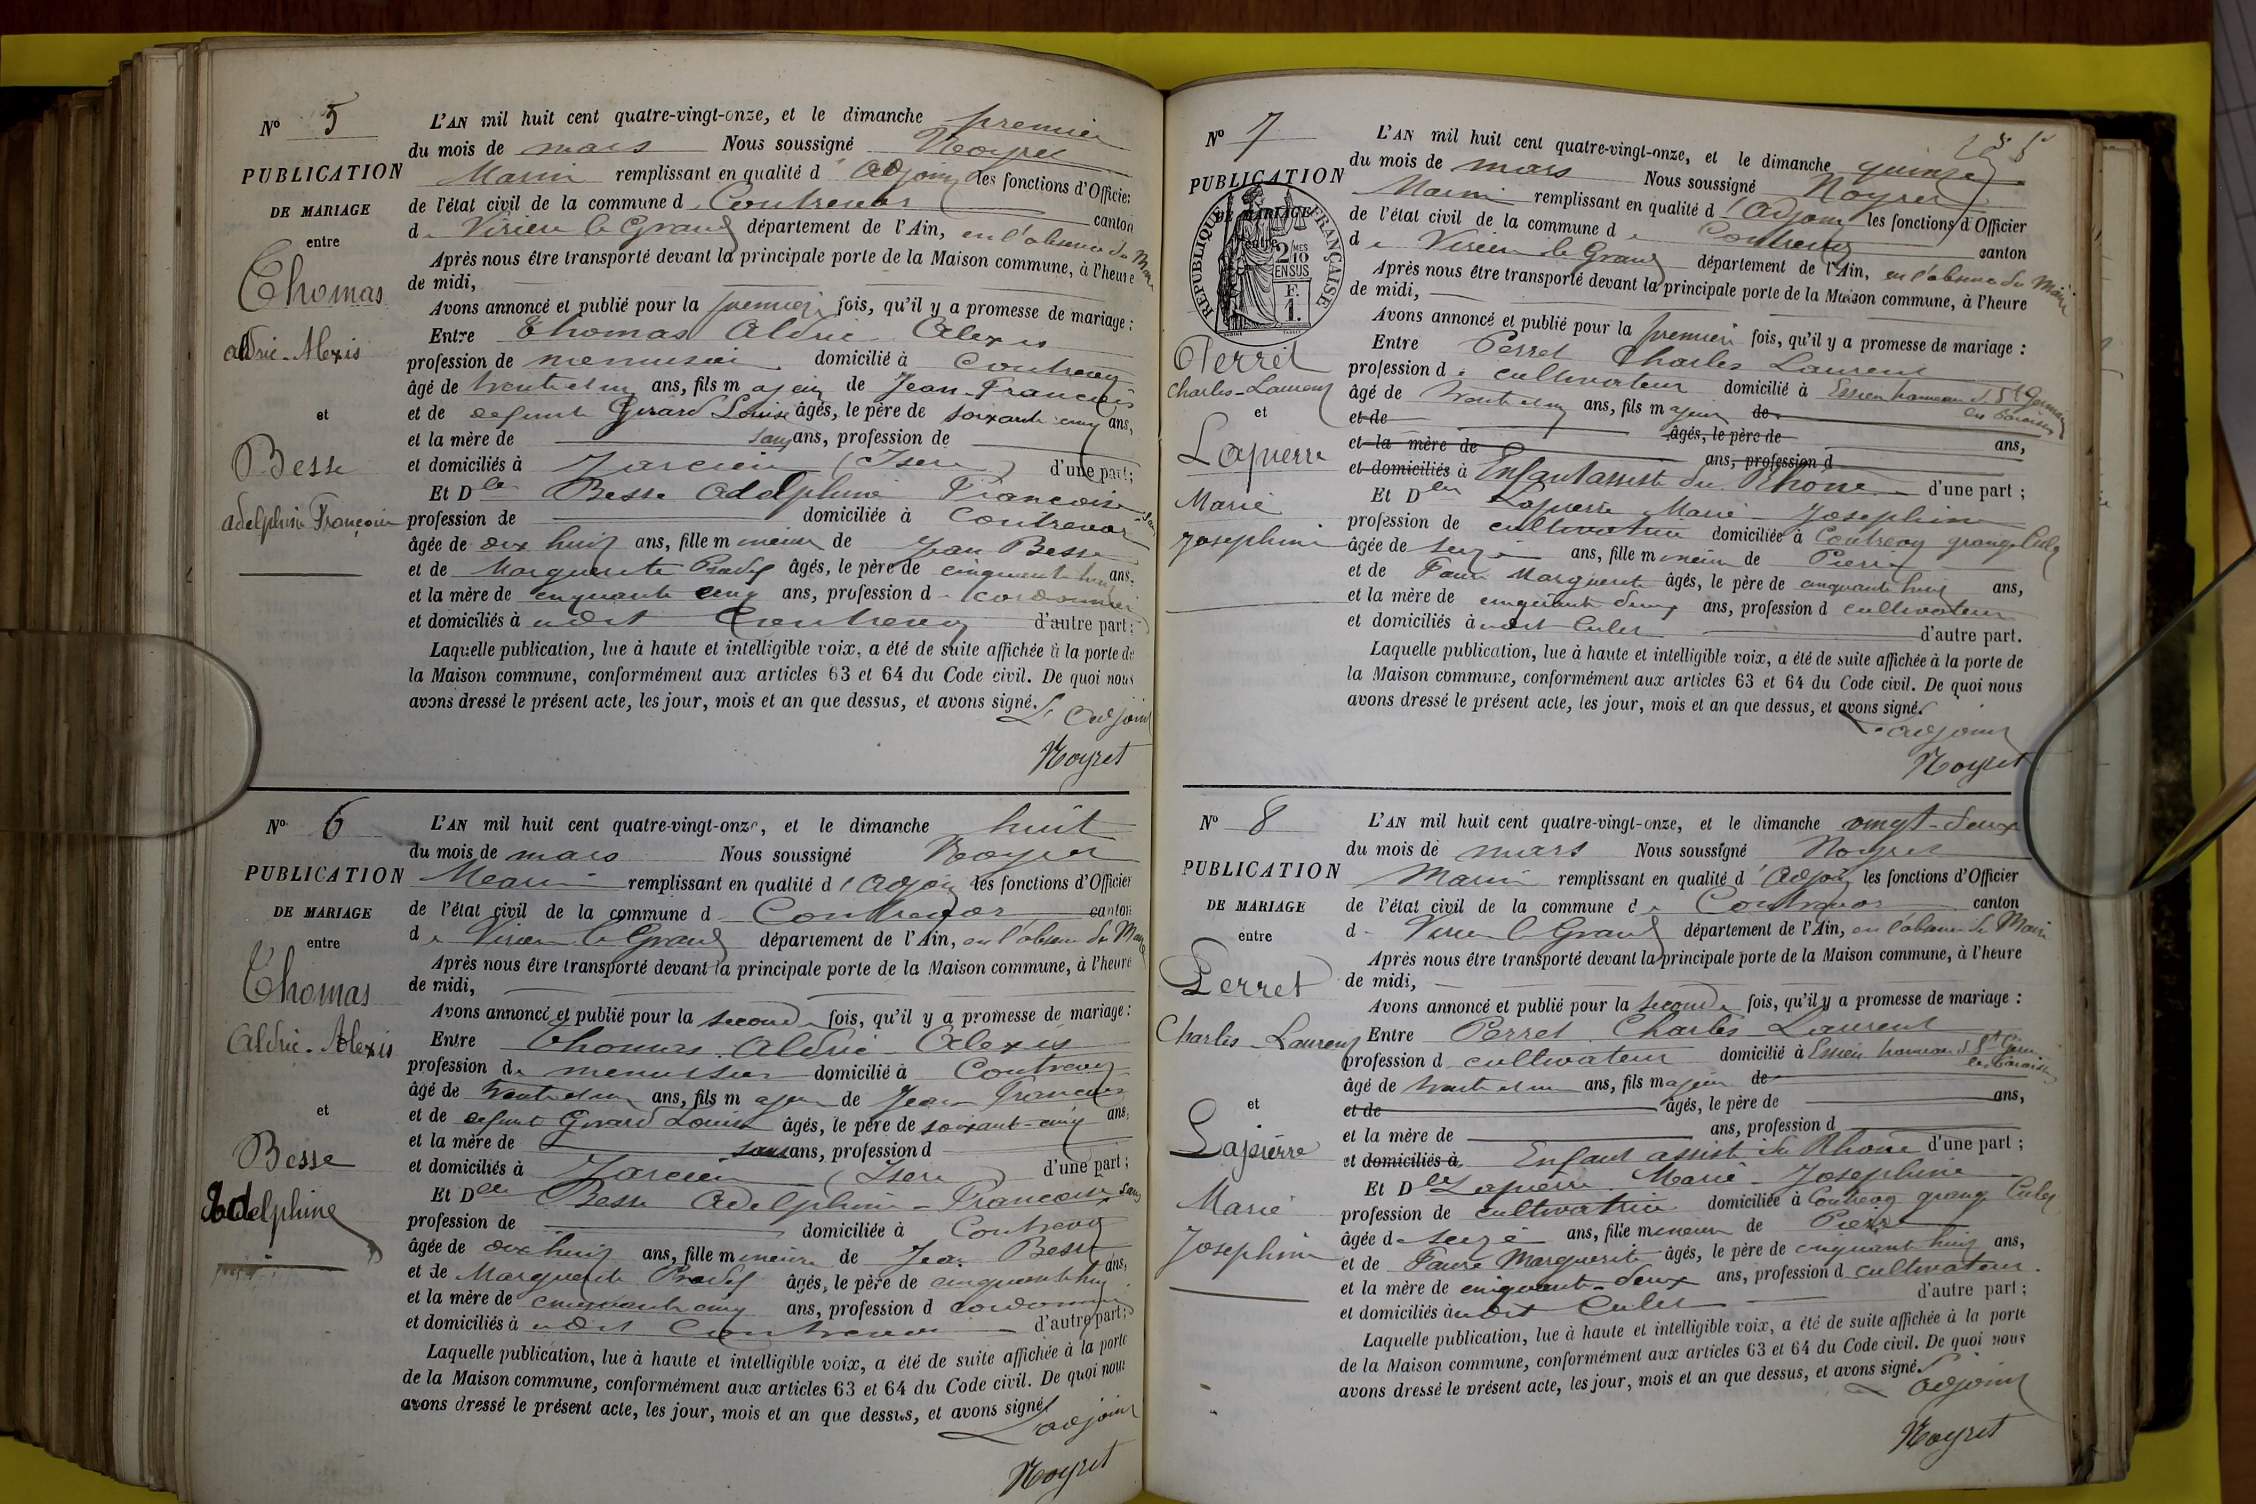 Nº 5
PUBLICATION
DE MARIAGE
entre
Thomas
Aldric-Alexis
et
Besse
adelphine Françoise
L'AN mil huit cent quatre-vingt-onze, et le dimanche premier
du mois de mars Nous soussigné Noyret
Marin remplissant en qualité d'adjoint les fonctions d'Officier
de l'état civil de la commune d Contrevoz canton
de Virieu le Grand département de l'Ain, en l'absence du Maire
Après nous être transporté devant la principale porte de la Maison commune, à l'heure
de midi,
Avons annoncé et publié pour la première fois, qu'il y a promesse de mariage :
Entre Thomas Aldric Alexis
profession de menuisier domicilié à Contrevoz
âgé de trente et un ans, fils majeur de Jean-François
et de defunte Girard Louise âgés, le père de soixante-cinq ans,
et la mère de sans ans, profession de
et domiciliés à Jarcieu (Isère) d'une part;
Et Dlle Besse Adelphine Françoise sans
profession de domiciliée à Contrevoz
âgée de dix huit ans, fille mineure de Jean Besse
et de Marguerite âgés, le père de cinquante huit ans,
et la mère de cinquante cinq ans, profession de cordonnier
et domiciliés à Contrevoz d'autre part;
Laquelle publication, lue à haute et intelligible voix, a été de suite affichée à la porte de
la Maison commune, conformément aux articles 63 et 64 du Code civil. De quoi nous
avons dressé le présent acte, les jour, mois et an que dessus, et avons signé.
L'adjoint
Noyret
Nº 6
PUBLICATION
DE MARIAGE
entre
Thomas
Aldric-Alexis
et
Besse
Adelphine
L'AN mil huit cent quatre-vingt-onze, et le dimanche huit
du mois de mars Nous soussigné Noyret
Marin remplissant en qualité d'adjoint les fonctions d'Officier
de l'état civil de la commune d Contrevoz canton
de Virieu le Grand département de l'Ain, en l'absence du Maire
Après nous être transporté devant la principale porte de la Maison commune, à l'heure
de midi,
Avons annoncé et publié pour la seconde fois, qu'il y a promesse de mariage :
Entre Thomas Aldric Alexis
profession de menuisier domicilié à Contrevoz
âgé de trente et un ans, fils majeur de Jean François
et de defunte Girard Louise âgés, le père de soixante-cinq ans,
et la mère de sans ans, profession d
et domiciliés à Jarcieu (Isère) d'une part;
Et Dlle Besse Adelphine-Françoise sans
profession de domiciliée à Contrevoz
âgée de dix huit ans, fille mineure de Jean Besse
et de Marguerite âgés, le père de cinquante huit ans,
et la mère de cinquante cinq ans, profession d cordonnier
et domiciliés à Contrevoz d'autre part;
Laquelle publication, lue à haute et intelligible voix, a été de suite affichée à la porte
de la Maison commune, conformément aux articles 63 et 64 du Code civil. De quoi nous
avons dressé le présent acte, les jour, mois et an que dessus, et avons signé
L'adjoint
Noyret
Nº 7
PUBLICATION
DE MARIAGE
entre
RÉPUBLIQUE FRANÇAISE
2/10 MES EN SUS
F. 1.
Perret
Charles-Laurent
et
Lapierre
Marie
Josephine
L'AN mil huit cent quatre-vingt-onze, et le dimanche quinze
du mois de mars Nous soussigné Noyret
Marin remplissant en qualité d'adjoint les fonctions d'Officier
de l'état civil de la commune de Contrevoz canton
de Virieu le Grand département de l'Ain, en l'absence du Maire
Après nous être transporté devant la principale porte de la Maison commune, à l'heure
de midi,
Avons annoncé et publié pour la première fois, qu'il y a promesse de mariage :
Entre Perret Charles Laurent
profession de cultivateur domicilié à Essieu hameau de St Germain
les Paroisses
âgé de trente et un ans, fils majeur de
et de âgés, le père de ans,
et la mère de ans, profession d
et domiciliés à Enfant assisté du Rhône d'une part ;
Et Dlle Lapierre Marie Josephine
profession de cultivatrice domiciliée à Contrevoz grange Culet
âgée de seize ans, fille mineure de Pierre
et de Faure Marguerite âgés, le père de cinquante huit ans,
et la mère de cinquante deux ans, profession d cultivateur
et domiciliés à Culet d'autre part.
Laquelle publication, lue à haute et intelligible voix, a été de suite affichée à la porte de
la Maison commune, conformément aux articles 63 et 64 du Code civil. De quoi nous
avons dressé le présent acte, les jour, mois et an que dessus, et avons signé.
L'adjoint
Noyret
Nº 8
PUBLICATION
DE MARIAGE
entre
Perret
Charles-Laurent
et
Lapierre
Marie
Josephine
L'AN mil huit cent quatre-vingt-onze, et le dimanche vingt-deux
du mois de mars Nous soussigné Noyret
Marin remplissant en qualité d'adjoint les fonctions d'Officier
de l'état civil de la commune de Contrevoz canton
de Virieu le Grand département de l'Ain, en l'absence du Maire
Après nous être transporté devant la principale porte de la Maison commune, à l'heure
de midi,
Avons annoncé et publié pour la seconde fois, qu'il y a promesse de mariage :
Entre Perret Charles Laurent
profession d cultivateur domicilié à Essieu hameau de St Germain
les Paroisses
âgé de trente et un ans, fils majeur de
et de âgés, le père de ans,
et la mère de ans, profession d
et domiciliés à Enfant assisté du Rhône d'une part ;
Et Dlle Lapierre Marie-Josephine
profession de cultivatrice domiciliée à Contrevoz grange Culet
âgée de seize ans, fille mineure de Pierre
et de Faure Marguerite âgés, le père de cinquante huit ans,
et la mère de cinquante-deux ans, profession d cultivateur.
et domiciliés à Culet d'autre part ;
Laquelle publication, lue à haute et intelligible voix, a été de suite affichée à la porte
de la Maison commune, conformément aux articles 63 et 64 du Code civil. De quoi nous
avons dressé le présent acte, les jour, mois et an que dessus, et avons signé.
L'adjoint
Noyret